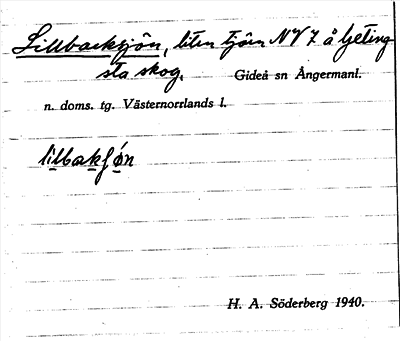 Lillbacktjön, liten tjärn NV 7 å
sta skog. Gideå sn Ångermanl.
n. doms. tg. Västernorrlands l.
lilbakʃøn
H. A. Söderberg 1940.